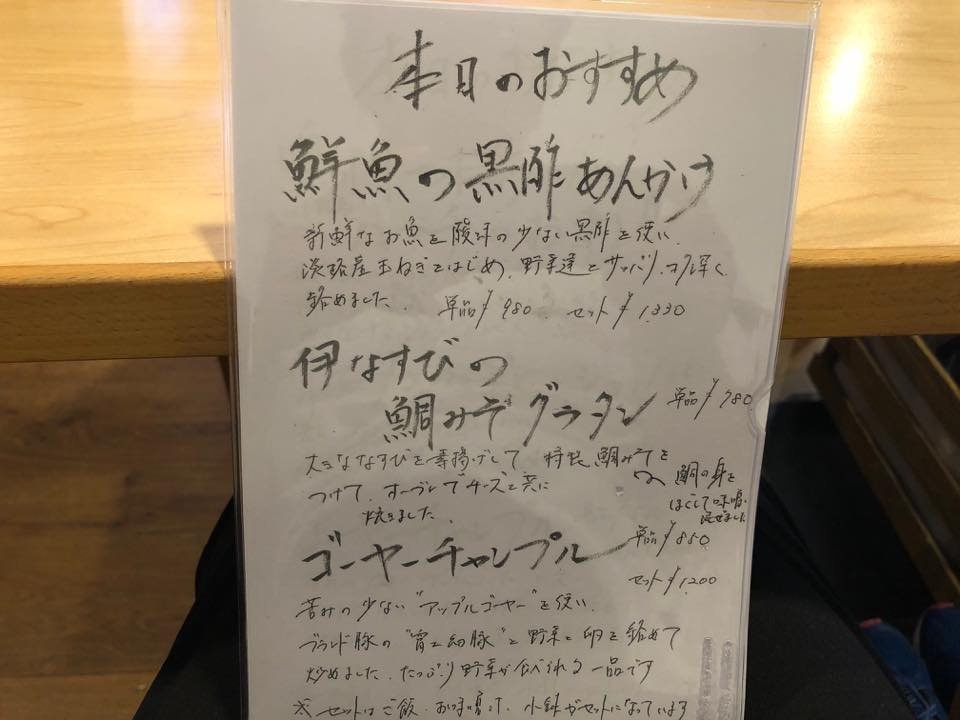 本日のおすすめ
鮮魚の黒酢あんかけ
新鮮なお魚を酸味の少ない黒酢を使い、
淡路産玉ねぎをはじめ、野菜達とサッパリ、コク深く
絡めました。 単品¥980. セット¥1,330
伊なすびの
鯛みそグラタン 単品¥780
大きななすびを素揚げして 特製鯛みそを
鯛の身を
つけて、オーブンでチーズと共に
ほぐして味噌に
混ぜました
焼きました。
ゴーヤーチャンプルー 単品¥850
セット¥1,200
苦みの少ない“アップルゴーヤー”を使い、
ブランド豚の“富士幻豚”と野菜と卵を絡めて
炒めました。たっぷり野菜が食べれる一品です
※セットはご飯・お味噌汁、小鉢がセットになっています